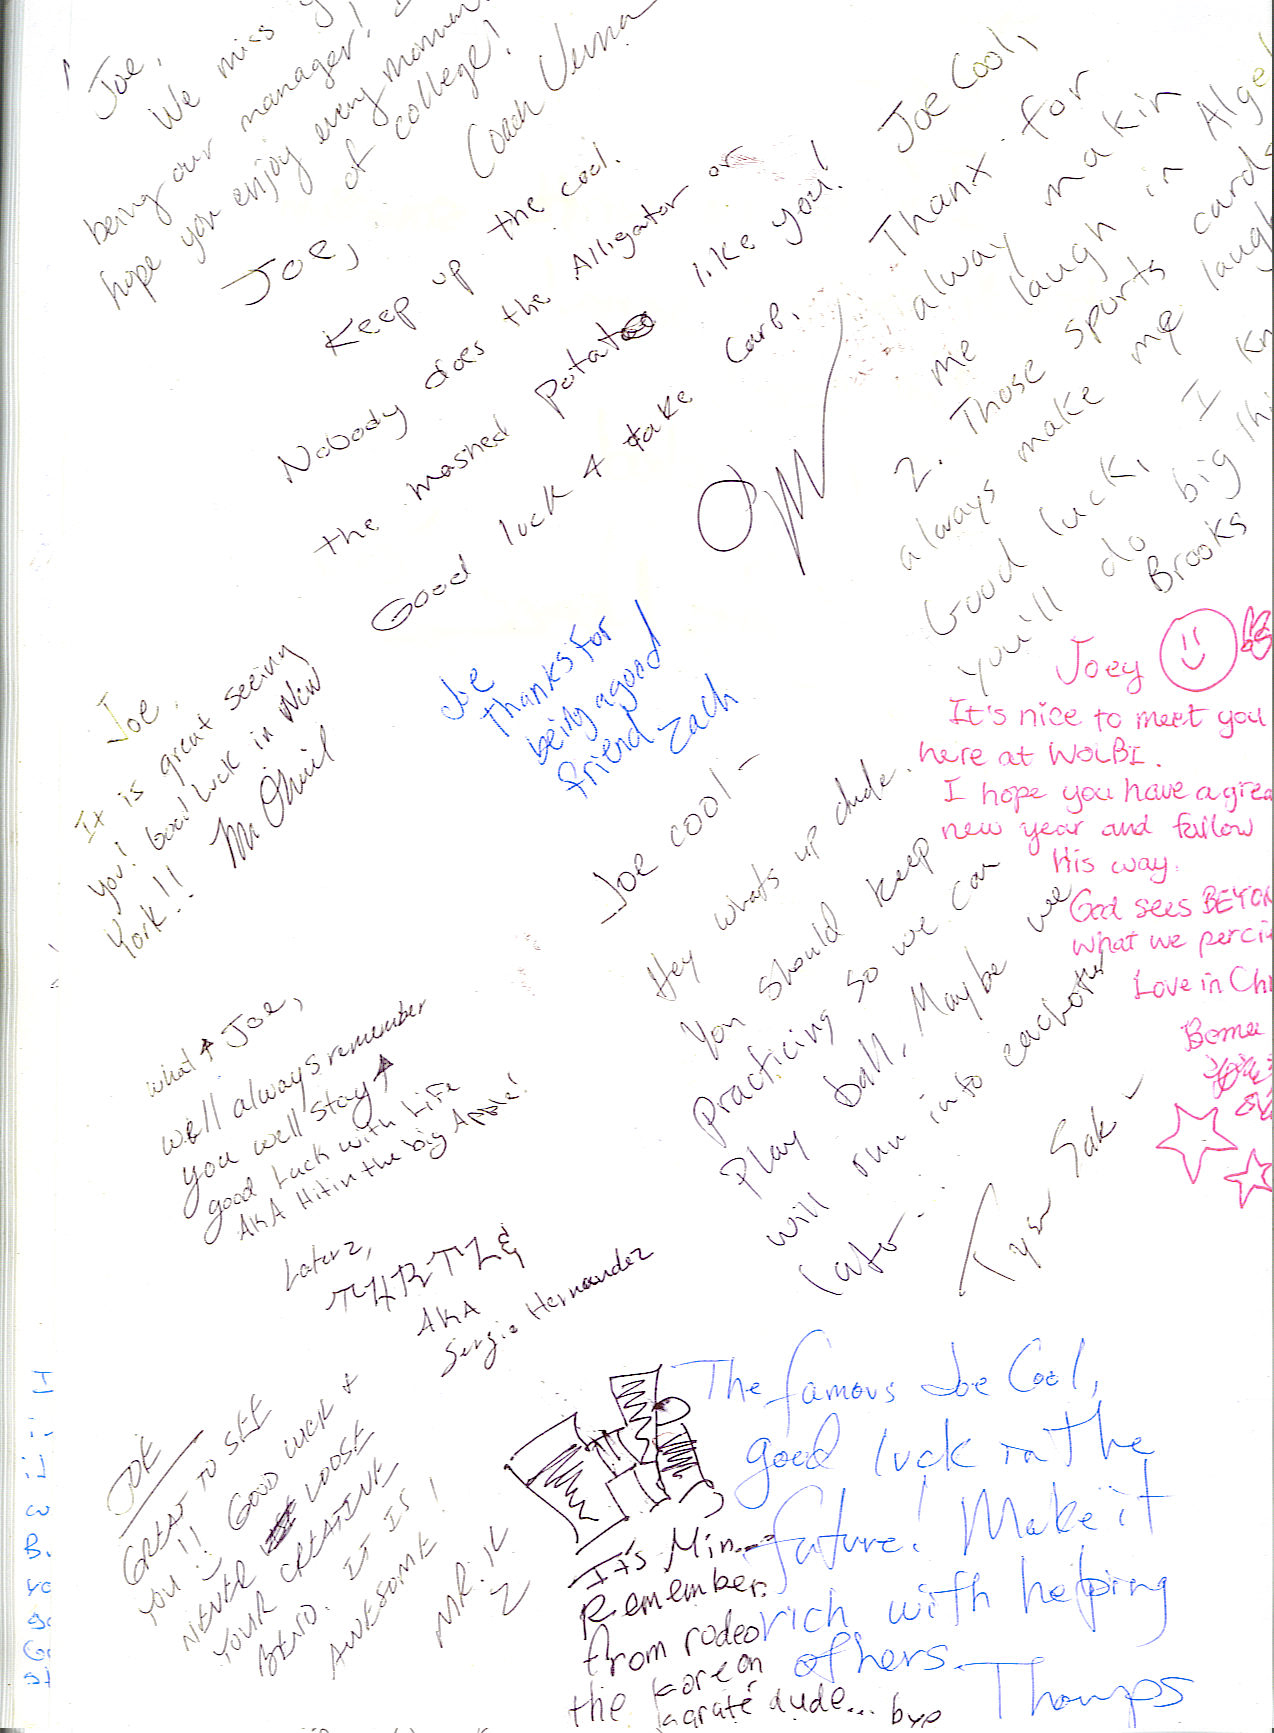 Joe,
We miss
being our manager!
hope you enjoy every moment
of college!
Coach
Joe,
Keep up the cool.
Nobody does the Alligator or
the mashed potatoe like you!
Good luck & take care.
Joe Cool,
Thanx for
alway makin
me laugh in Alge
2. Those sports cards
always make me laugh
Good luck, I kn
you'll do big thi
Brooks
Joe
Thanks for
being a good
friend Zach
Joe,
It is great seeing
you! Good luck in New
York!!
Joey
It's nice to meet you
here at WOLBI.
I hope you have a grea
new year and follow
His way.
God sees BEYON
what we perci
Love in Chr
Joe cool -
Hey whats up dude.
You should keep
practicing so we can
play ball. Maybe we
will run into eachother
later.
Tyson Sak -
What ↑ Joe,
we'll always remember
you well stay ↑
good Luck with Life
AKA Hit in the big Apple!
Laterz,
TURTLE
AKA
Sergio Hernandez
JOE
GREAT TO SEE
YOU!! GOOD LUCK &
NEVER LOOSE
YOUR CREATIVE
BEND. IT IS
AWESOME!
MR. K
It's Min...
Remember.
from rodeo
the korean
karate dude... bye
The famous Joe Cool,
good luck in the
future! Make it
rich with helping
others.
Thomps